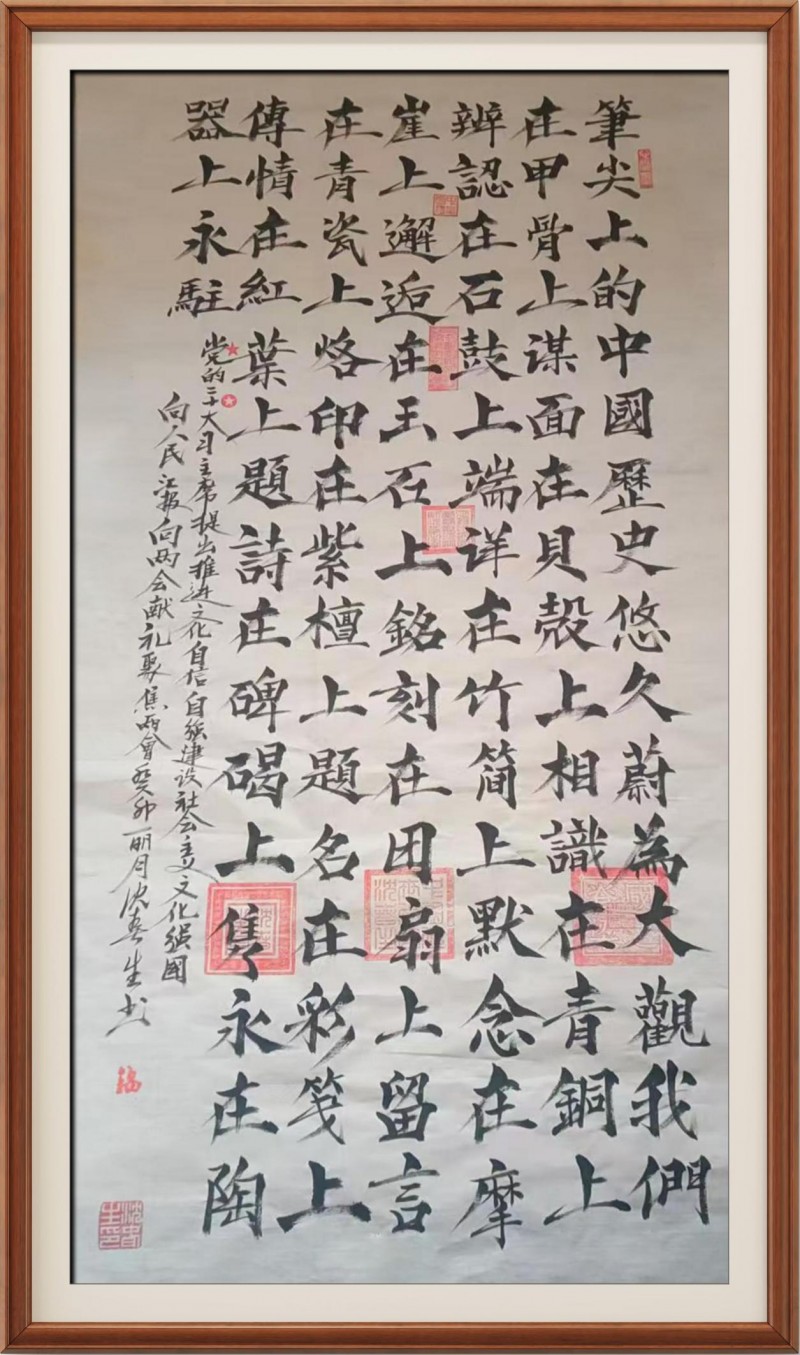 筆尖上的中國歷史悠久蔚為大觀我們
在甲骨上謀面在貝殼上相識在青銅上
辨認在石鼓上端详在竹简上默念在摩
崖上邂逅在玉石上銘刻在团扇上留言
在青瓷上烙印在紫檀上題名在彩笺上
傳情在紅葉上題詩在碑碣上隽永在陶
器上永駐
党的二十大习主席提出推进文化自信自强建设社会主义文化强国
向人民汇报向两会献礼聚焦两會癸卯明月沈春生书
福